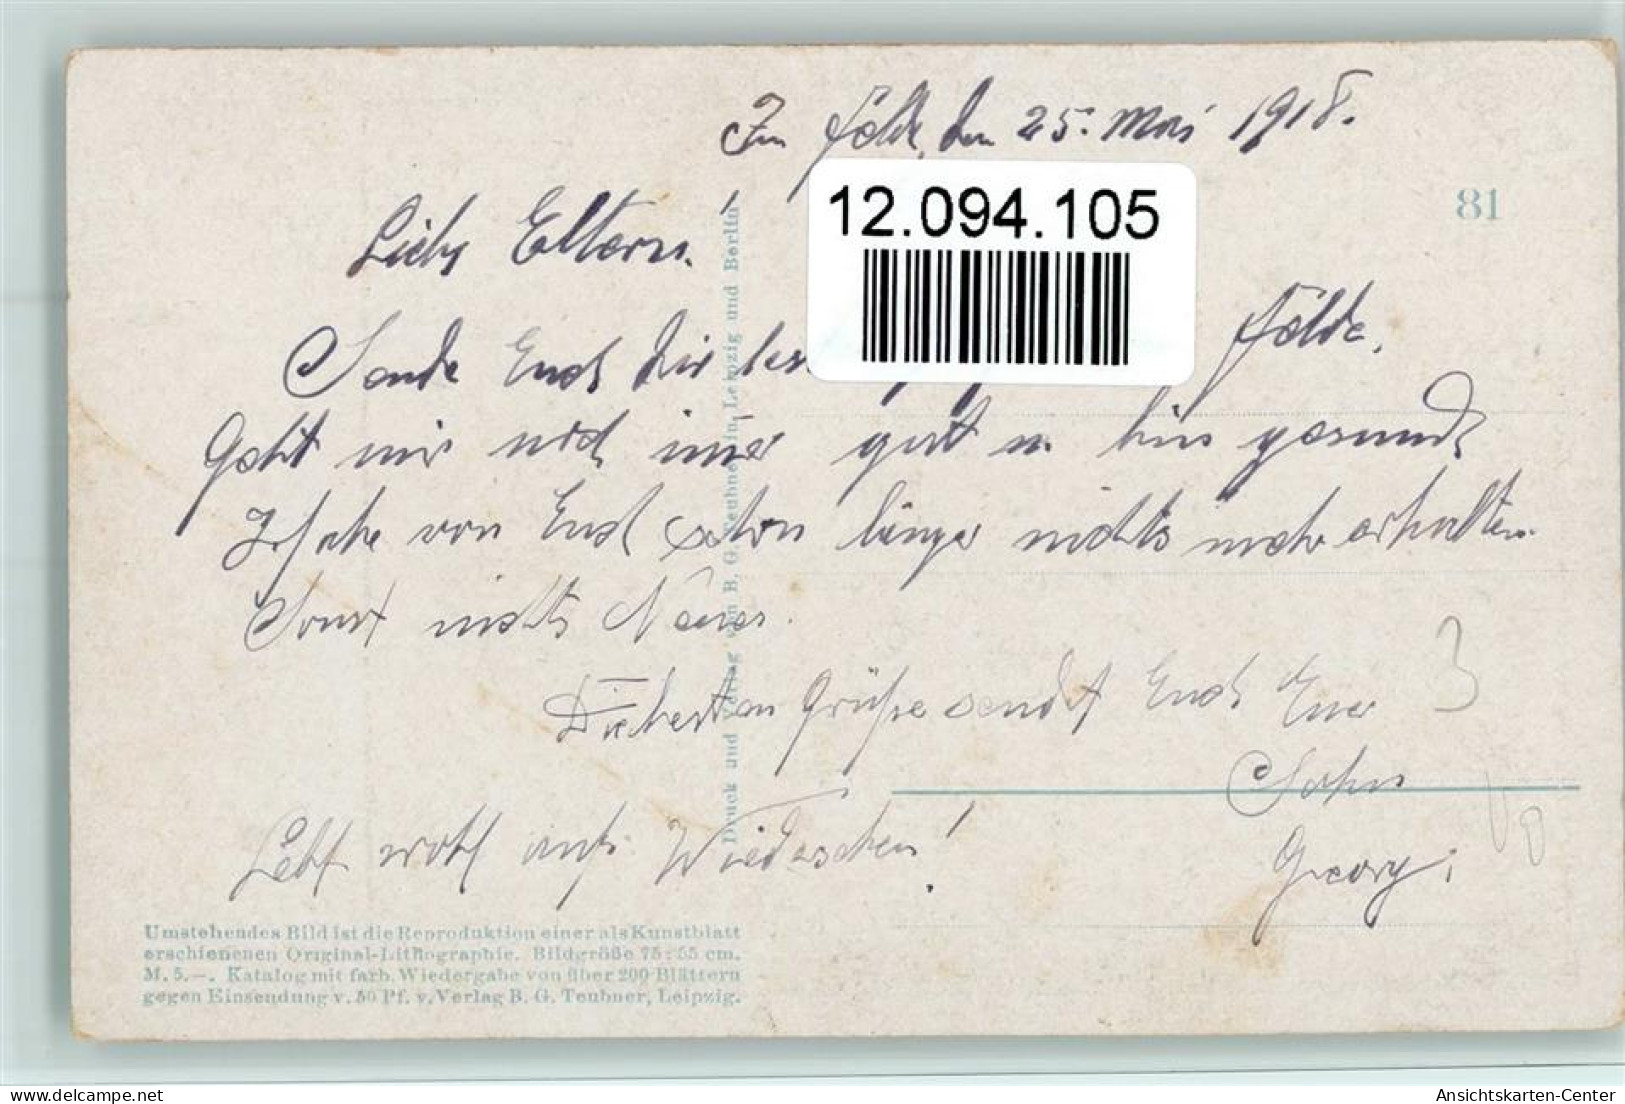 Im Felde, den 25. Mai 1918.
81
Liebe Eltern!
12.094.105
Sende Euch die bes Felde.
Geht mir noch imer gut u. bin gesund
Ich habe von Euch schon länger nichts mehr erhalten.
Sonst nichts Neues.
Grüße sendet Euch Euer
Sohn
Georg.
Lebt wohl aufs Wiedersehen!
3
Druck und Verlag von B. G. Teubner in Leipzig und Berlin
Umstehendes Bild ist die Reproduktion einer als Kunstblatt
erschienenen Original-Lithographie. Bildgröße 75:55 cm.
M. 5.—. Katalog mit farb. Wiedergabe von über 200 Blättern
gegen Einsendung v. 50 Pf. v. Verlag B. G. Teubner, Leipzig.
www.oldthing.net
Ansichtskarten-Center